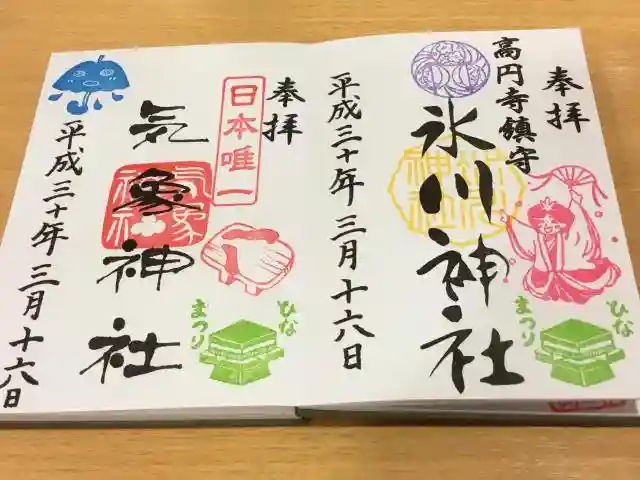 奉拝
高円寺鎮守
氷川神社
ひな
まつり
平成三十年三月十六日
奉拝
日本唯一
気象神社
ひな
まつり
平成三十年三月十六日